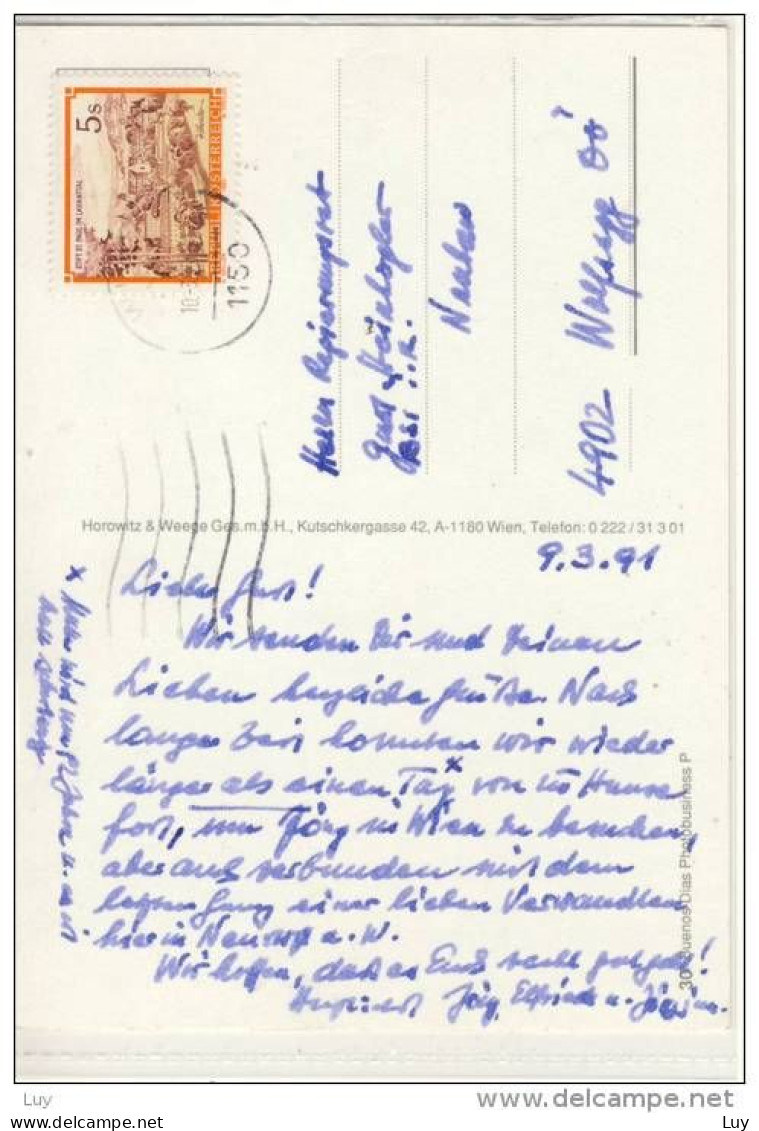 5 S
STIFT ST. PAUL IM LAVANTTAL
REPUBLIK ÖSTERREICH
1150
Herrn Regierungsrat
i. R.
Neubau
4902 Wolfsegg OÖ
Horowitz & Weege Ges.m.b.H., Kutschkergasse 42, A-1180 Wien, Telefon: 0 222 / 31 3 01
9.3.91
Lieber Gust!
Wir senden Dir und Deinen
Lieben herzliche Grüße. Nach
langer Zeit konnten wir wieder
länger als einen Tag x von zu Hause
fort, um Jörg in Wien zu besuchen,
aber auch verbunden mit dem
letzten Gang einer lieben Verwandten
hier in Neusiedl
Wir hoffen, daß es Euch recht gut geht!
Herzlichst Jörg, Elfriede u.
x Mutter wird nun 82 Jahre u. es ist
sehr schwierig
30 Buenos Dias Photobusiness P
Luy
www.delcampe.net
Luy